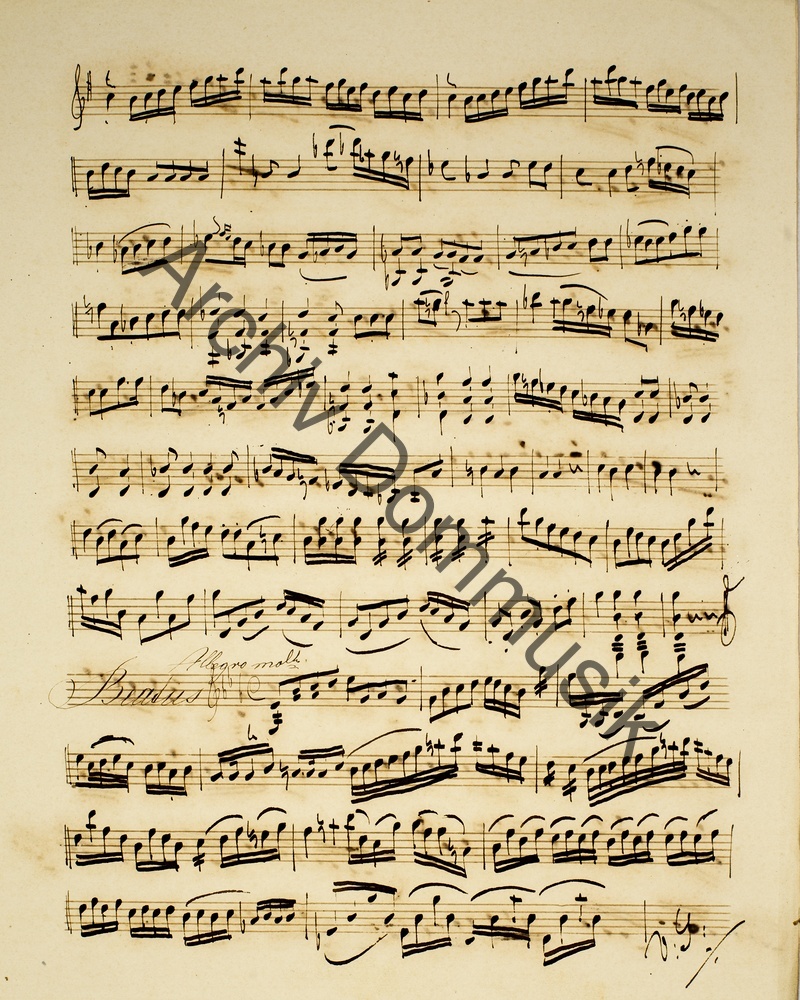 Archiv Dommusik
Allegro molto.
Beatus
V. S.